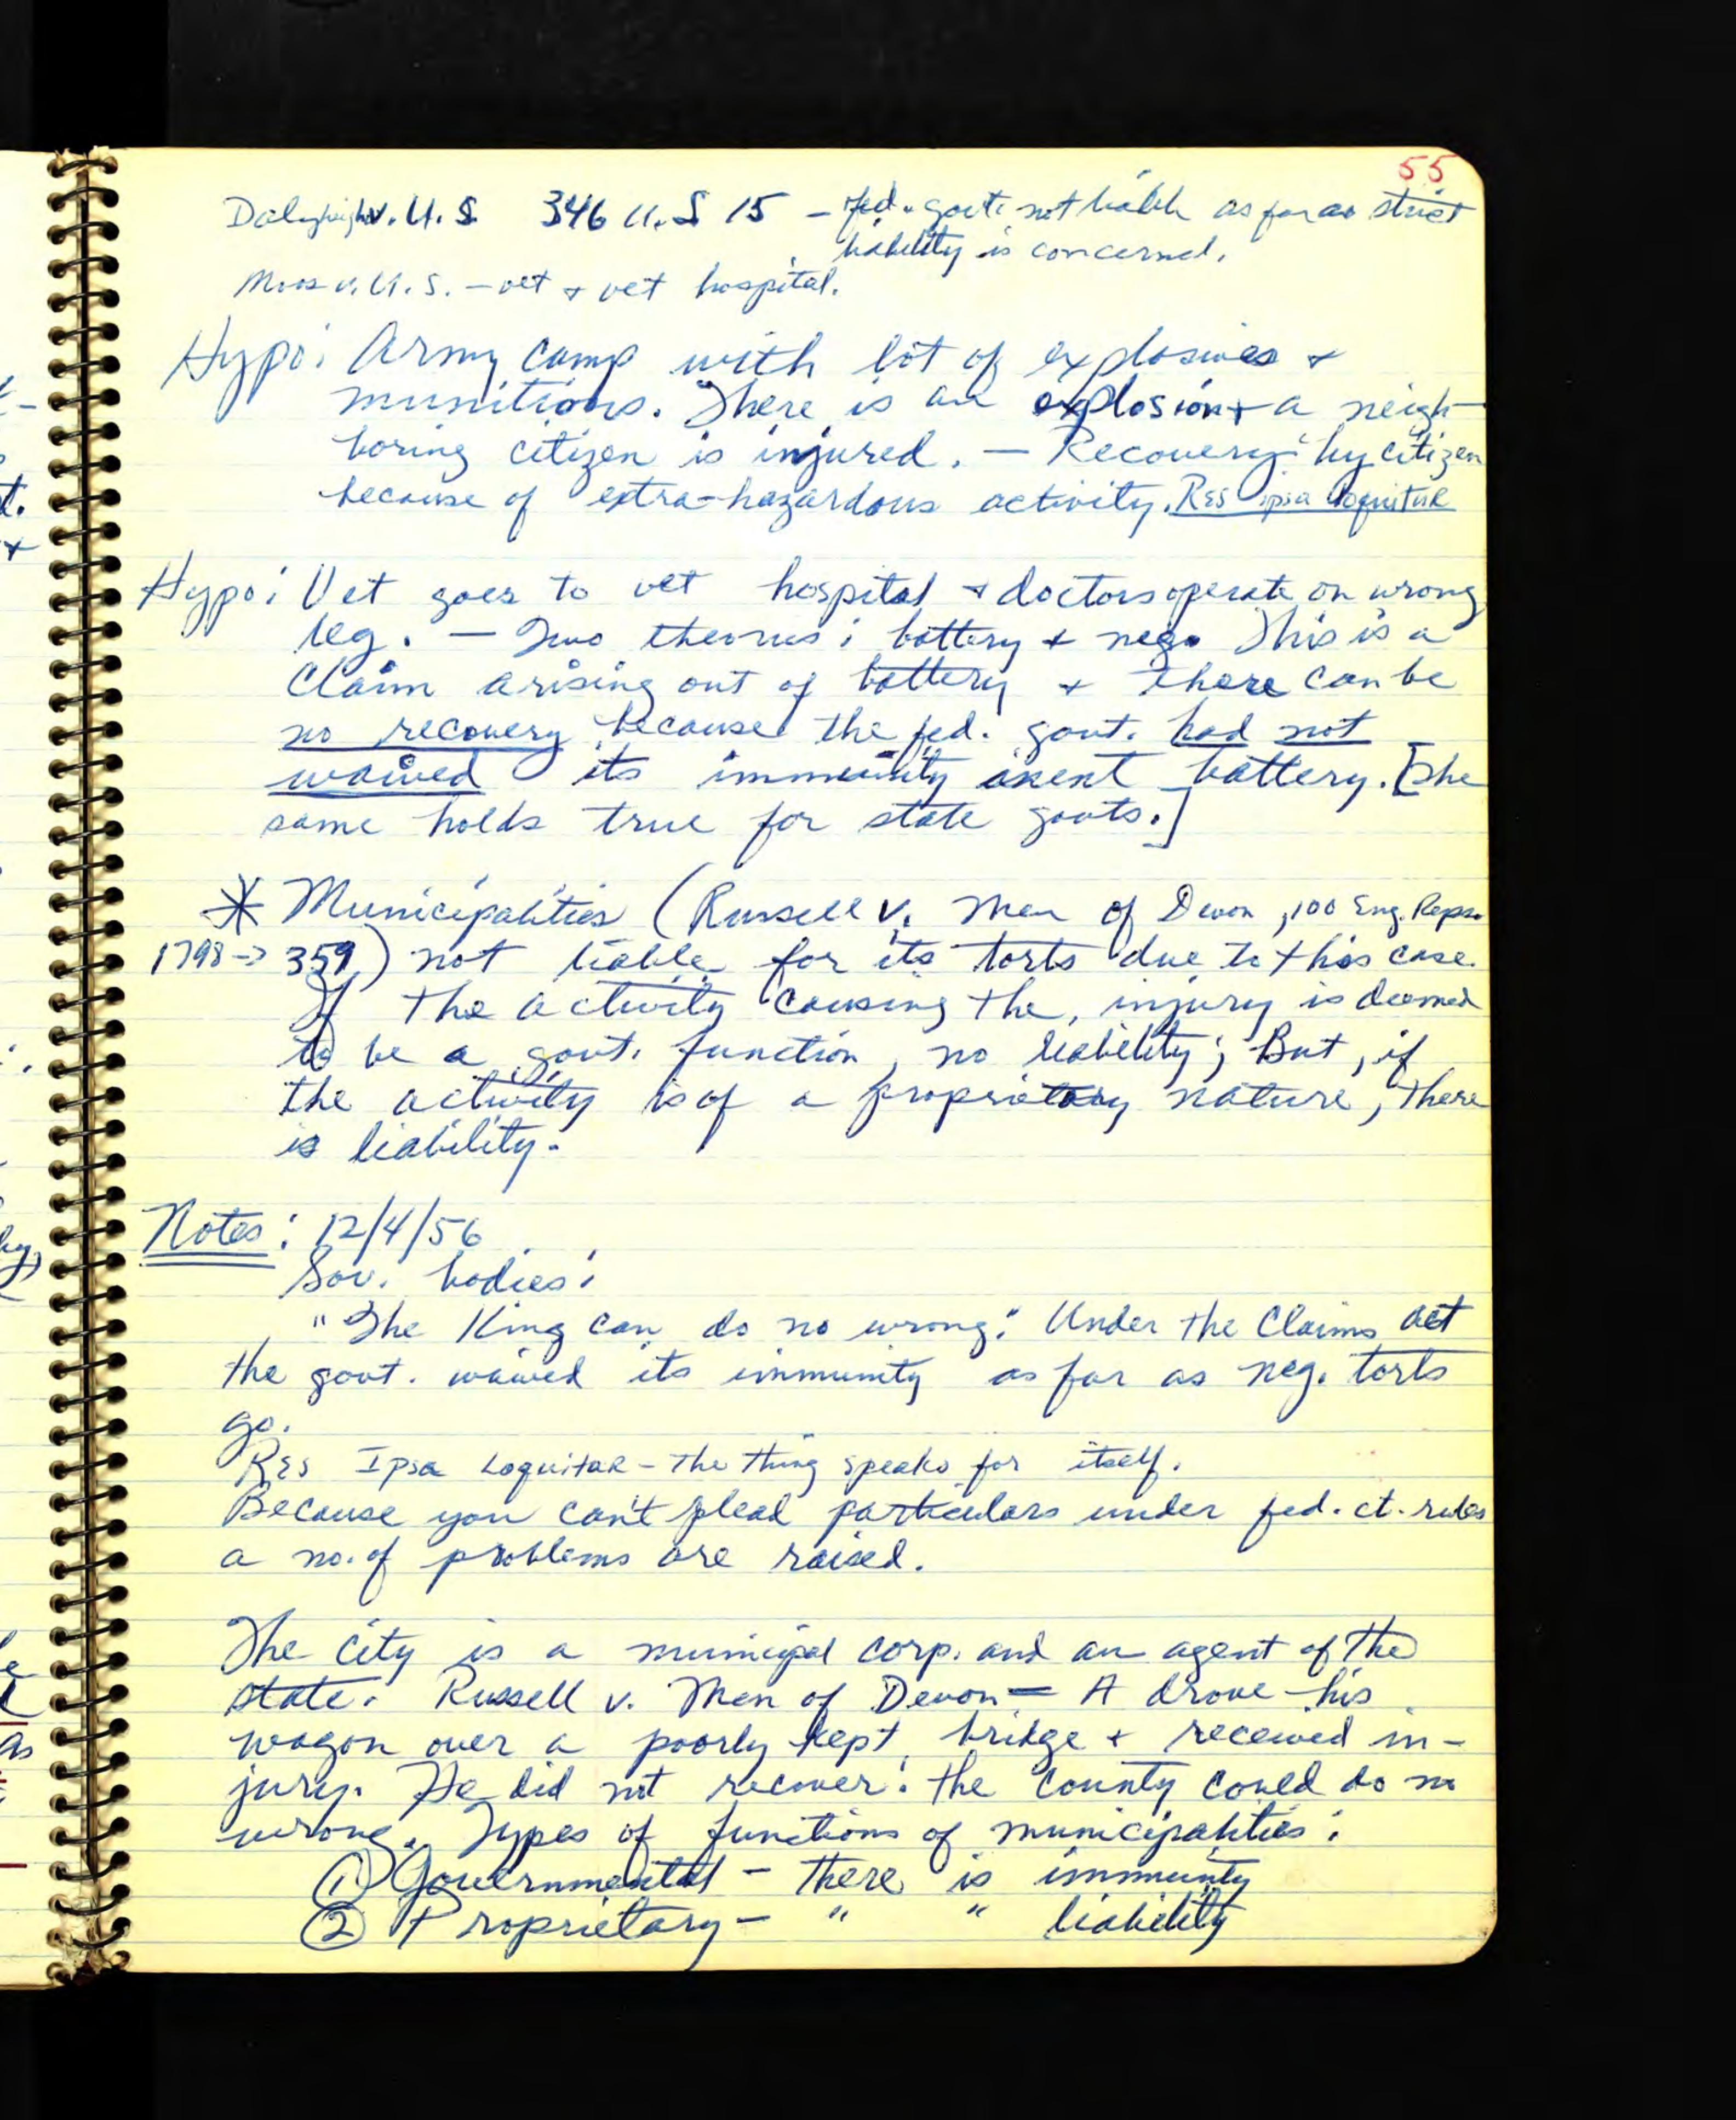 55
Dalehight v. U.S. 346 U.S 15 – fed. govt. not liable as far as strict
liability is concerned.
Moos v. U.S. – vet + vet hospital.
Hypo: Army camp with lot of explosives +
munitions. There is an explosion + a neigh-
boring citizen is injured. – Recovery by citizen
because of extra-hazardous activity. Res ipsa loquitur
Hypo: Vet goes to vet hospital + doctors operate on wrong
leg. – Two theories: battery + neg. This is a
claim arising out of battery + there can be
no recovery because the fed. govt. had not
waived its immunity anent battery. [The
same holds true for state govts.]
* Municipalities (Russell v. Men of Devon, 100 Eng. Reps.
1798 -> 359) not liable for its torts due to this case.
If the activity causing the injury is deemed
to be a govt. function, no liability; But, if
the activity is of a proprietary nature, there
is liability.
Notes: 12/4/56
Gov. bodies:
"The King can do no wrong." Under the Claims Act
the govt. waived its immunity as far as neg. torts
go.
Res Ipsa Loquitur – The thing speaks for itself.
Because you can't plead particulars under fed. ct. rules
a no. of problems are raised.
The city is a municipal corp. and an agent of the
state. Russell v. Men of Devon – A drove his
wagon over a poorly kept bridge + received in-
jury. He did not recover: the county could do no
wrong. Types of functions of municipalities:
① Governmental – there is immunity
② Proprietary – " " liability